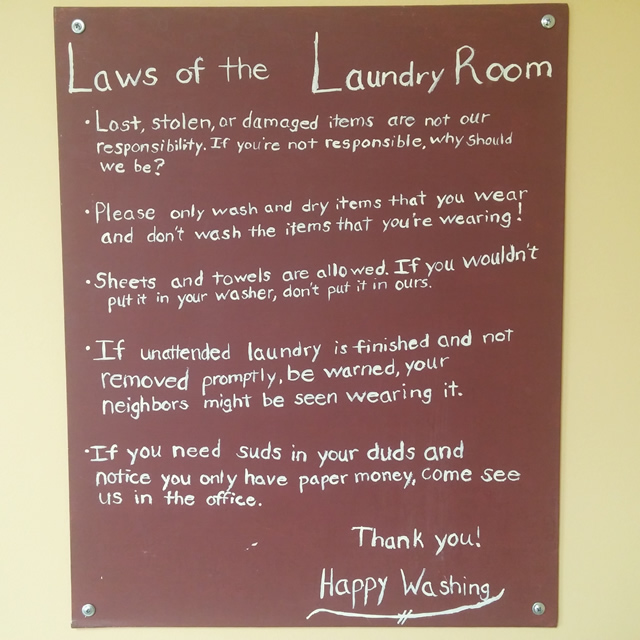 Laws of the Laundry Room
• Lost, stolen, or damaged items are not our
responsibility. If you're not responsible, why should
we be?
• Please only wash and dry items that you wear
and don't wash the items that you're wearing!
• Sheets and towels are allowed. If you wouldn't
put it in your washer, don't put it in ours.
• If unattended laundry is finished and not
removed promptly, be warned, your
neighbors might be seen wearing it.
• If you need suds in your duds and
notice you only have paper money, come see
us in the office.
Thank you!
Happy Washing